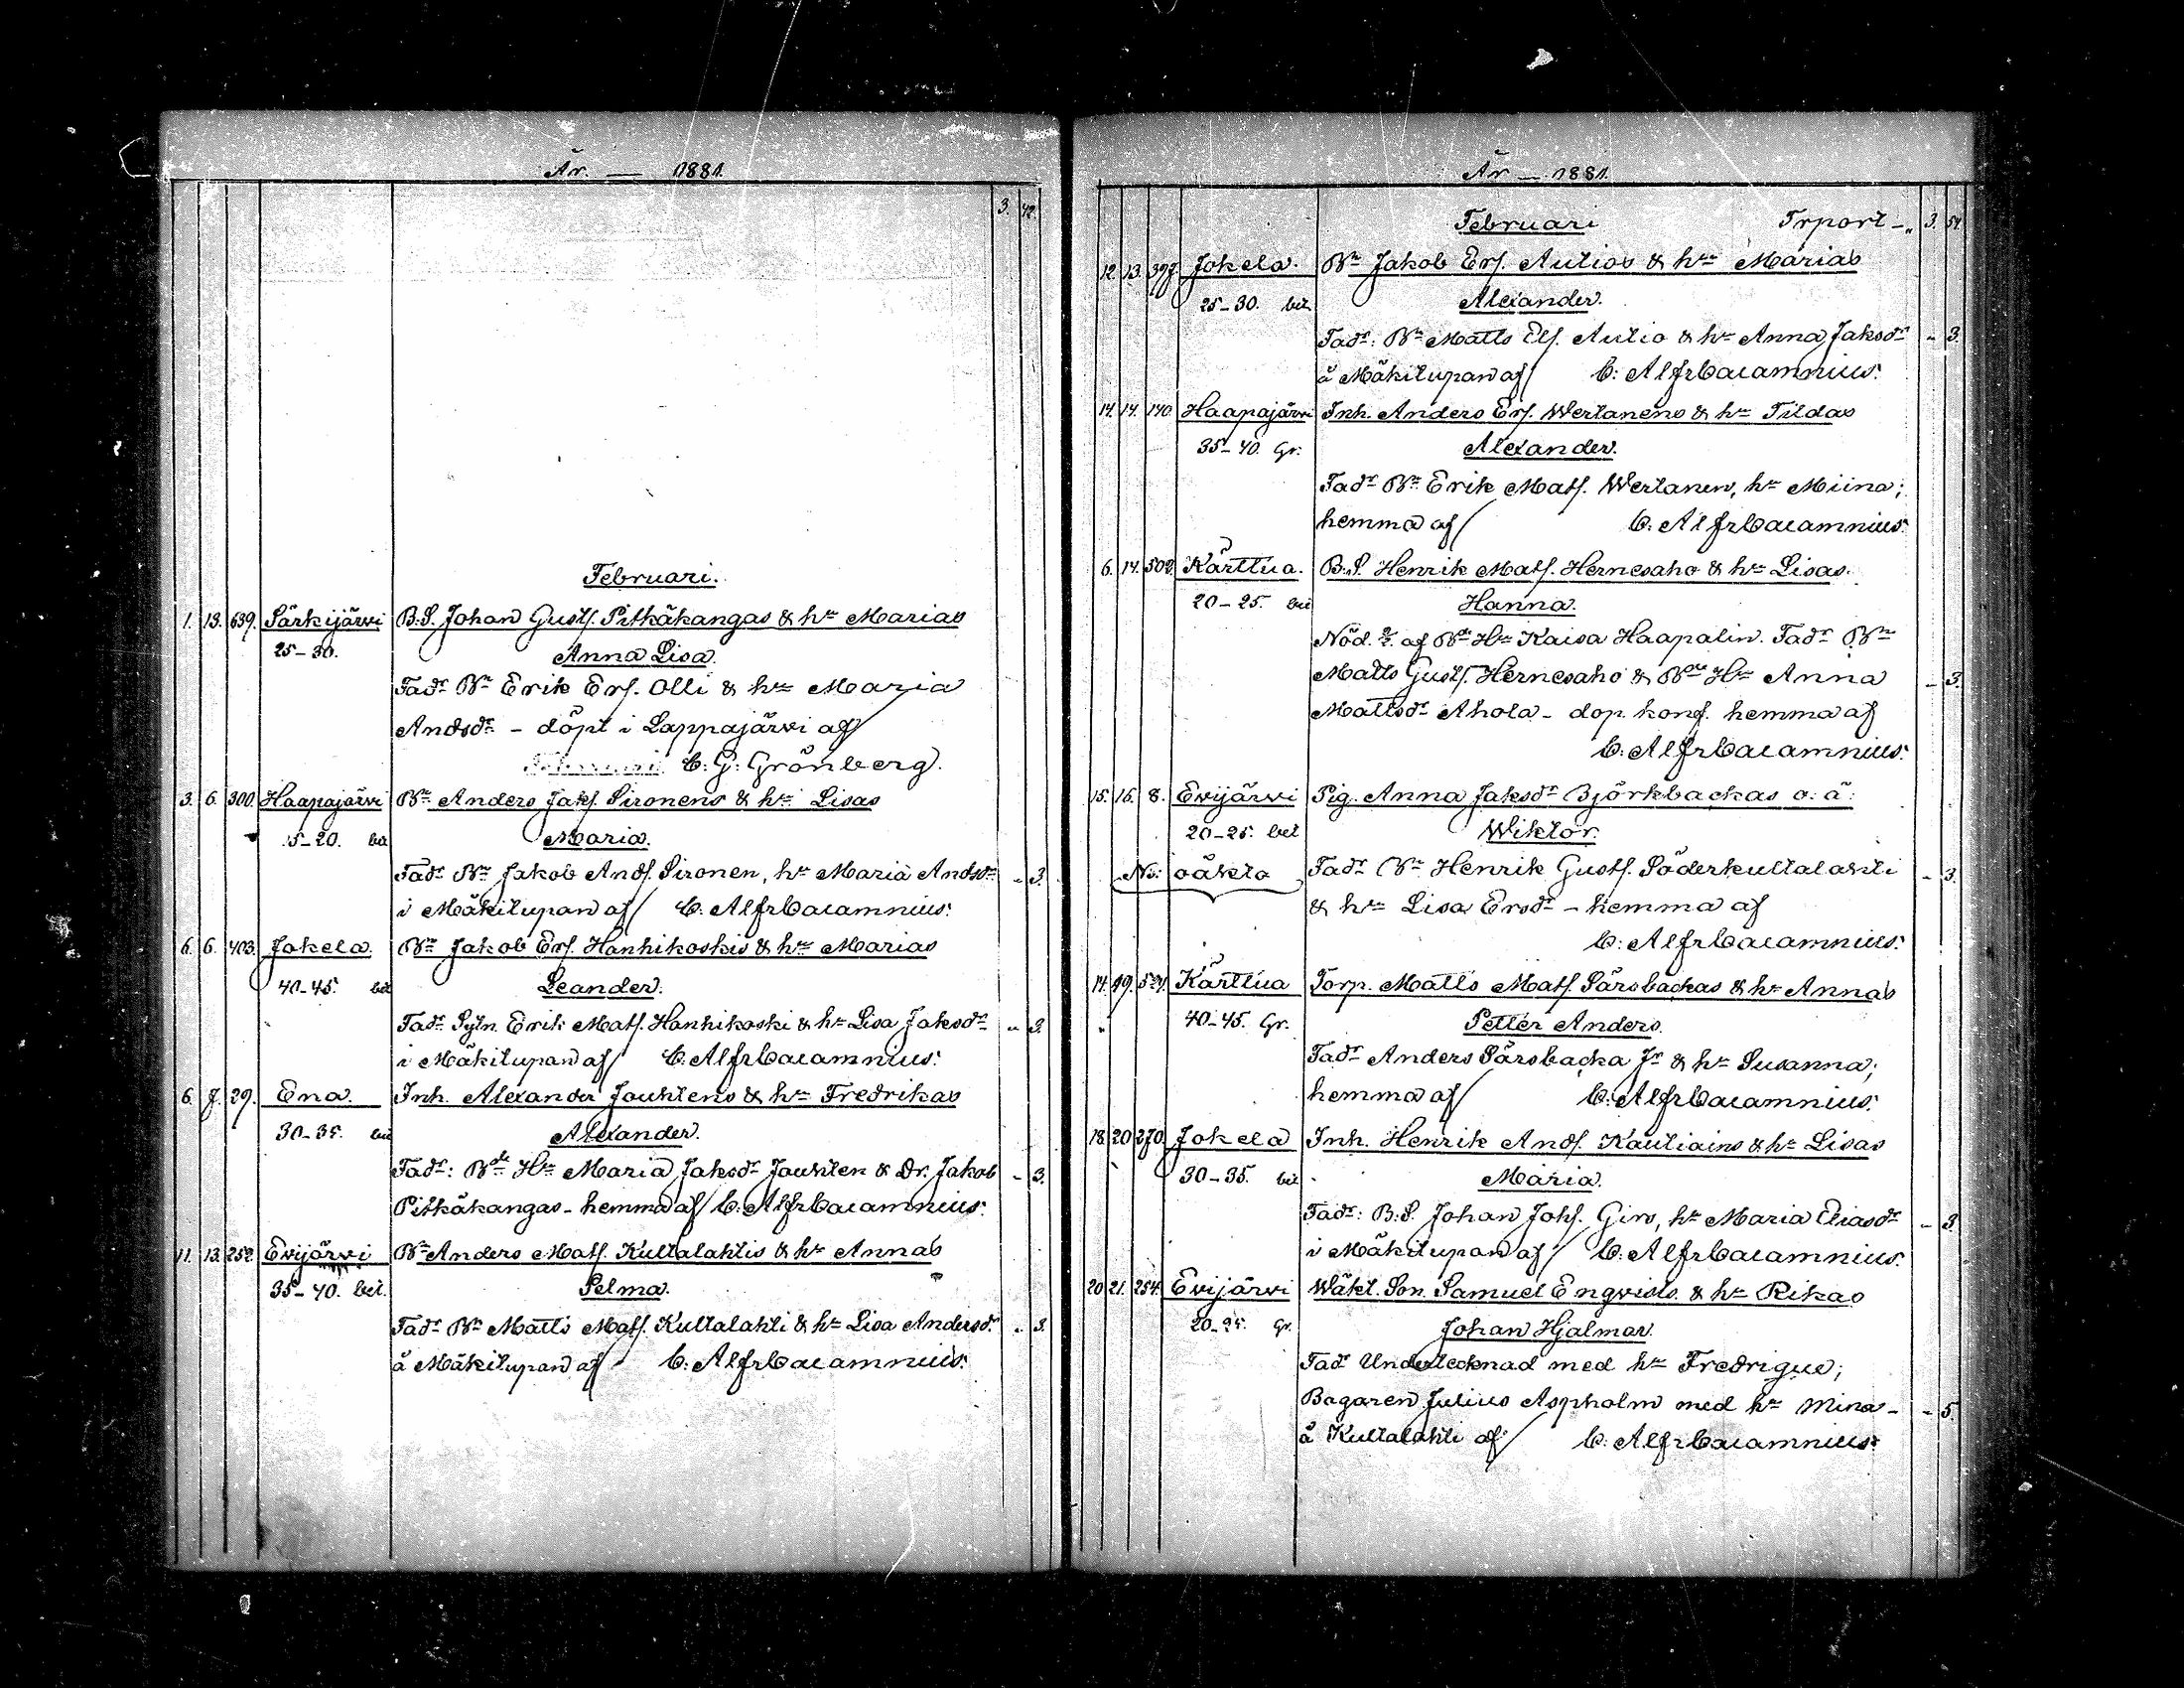 År. — 1881.
3. 42.
Februari.
1. 13. 639. Särkijärvi B.S. Johan Gustf. Pitkäkangas & hu Marias
25-30. Anna Lisa.
Fadr Bn Erik Ersf. Olli & hu Maria
Andsdr - döpt i Lappajärvi af
C: G: Grönberg.
3. 6. 300. Haapajärvi Bn Anders Jakf. Sironens & hu Lisas
15-20. bet Maria.
Fadr Bn Jakob Andf. Sironen, hu Maria Andsdr - 3.
i Mäkitupan af C: Alfr Cacamnius:
6. 6. 403. Jokela. Bn Jakob Erf. Hanhikoskis & hu Marias
40-45. bet Leander.
Fadr Sytn. Erik Matf. Hanhikoski & hu Lisa Jaksdr - 3.
i Mäkitupan af C: Alfr Cacamnius:
6. 7. 29. Ena. Inh. Alexander Jouhtens & hu Fredrikas
30-35. bet Alexander.
Fadr: Bde Hu Maria Jaksdr Jouhten & Dr. Jakob - 3.
Pitkäkangas - hemma af C: Alfr Cacamnius:
11. 13. 252. Evijärvi Bn Anders Matf. Kultalahtis & hu Annas
35-40. bet. Selma.
Fadr Bn Matts Matf. Kultalahti & hu Lisa Andersdr. - 3.
å Mäkitupan af C: Alfr Cacamnius:
År — 1881.
Februari Trport - 3. 54.
12. 13. 397. Jokela. Bn Jakob Erf. Autios & hu Marias
25-30. bet Alexander.
Fadr: Bn Matts Elf. Autio & hu Anna Jaksdr - 3.
å Mäkitupan af C: Alfr Cacamnius:
14. 14. 140. Haapajärvi Inh. Anders Erf. Wertanens & hu Tildas
35-40. Gr. Alexander.
Fadr Bn Erik Matf. Wertanen, hu Miina;
hemma af C: Alfr Cacamnius:
6. 14. 502. Kärttua. B.S. Henrik Matf. Hernesaho & hu Lisas.
20-25. bet Hanna.
Nöd. af Bde Hu Kaisa Haapalin. Fadr Bn
Matts Gustf. Hernesaho & Bde Hu Anna - 3.
Mattsdr Ahola - dop konf. hemma af
C: Alfr Cacamnius:
15. 16. 8. Evijärvi Pig. Anna Jaksdr Björkbackas o: ä:
20-25. bet Wiktor.
No: oäkta Fadr Bn Henrik Gustf. Söderkultalahti - 3.
& hu Lisa Ersdr - hemma af
C: Alfr Cacamnius:
14. 19. 524. Kärttua Torp. Matts Matf. Särsbackas & hu Annas
40-45. Gr. Petter Anders.
Fadr Anders Särsbacka Jr & hu Susanna;
hemma af C: Alfr Cacamnius:
18. 20 270. Jokela Inh. Henrik Andf. Kautiains & hu Lisas
30-35. bet Maria.
Fadr: B:S. Johan Johf. Girs, hu Maria Eliasdr - 3
i Mäkitupan af C: Alfr Cacamnius:
20 21. 254. Evijärvi Wäkt. Son. Samuel Enqvists. & hu Rikas
20-25. Gr. Johan Hjalmar.
Fadr Undertecknad med hu Fredrique;
Bagaren Julius Aspholm med hu Mina - - 5.
å Kultalahti af C: Alfr Cacamnius: